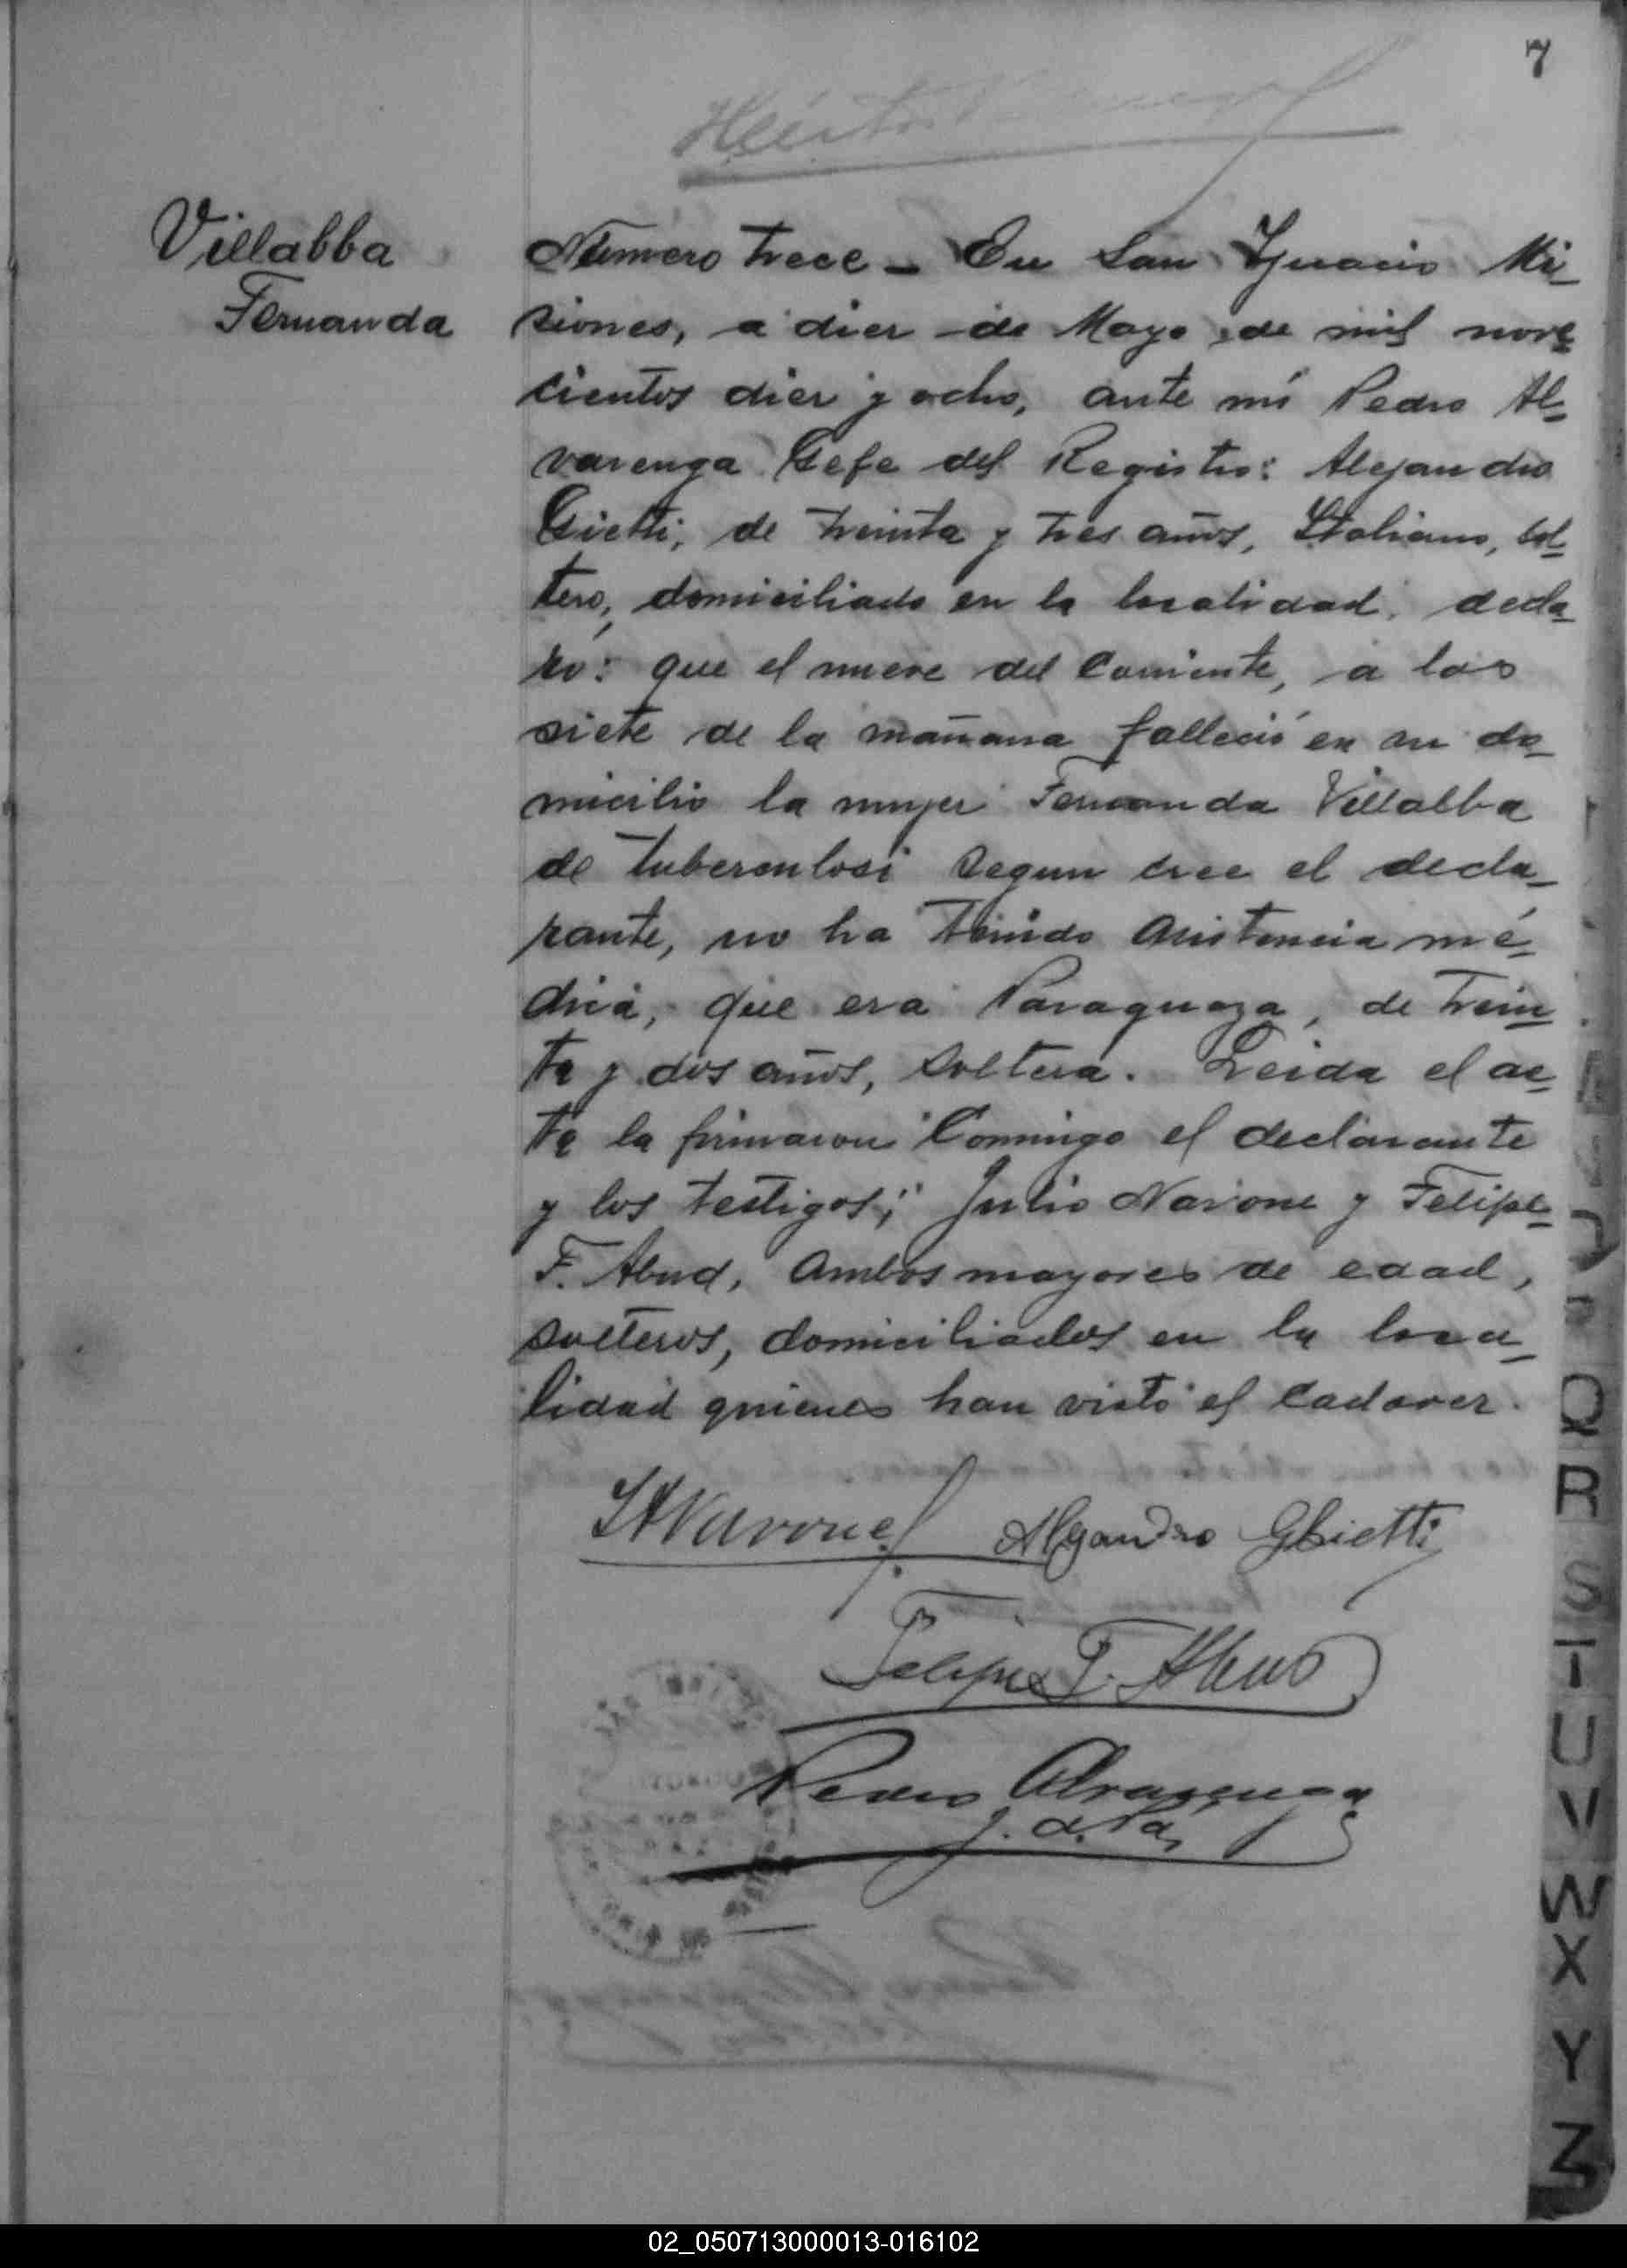 7
Villabba
Fernanda
Número trece - En San Ygnacio Mi-
siones, a diez de Mayo de mil nove-
cientos diez y ocho, ante mí Pedro Al-
varenga Gefe del Registro: Alejandro
Gietti, de treinta y tres años, Italiano, sol-
tero, domiciliado en la localidad, decla-
ró: que el nueve del corriente, a las
siete de la mañana falleció en su do-
micilio la mujer Fernanda Villalba
de tuberculosi segun cree el decla-
rante, no ha tenido asistencia mé-
dica, que era Paraguaya, de trein-
ta y dos años, soltera. Leida el ac-
ta la firmaron Conmigo el declarante
y los testigos; Julio Navone y Felipe
F. Abud, ambos mayores de edad,
solteros, domiciliados en la loca-
lidad quienes han visto el cadaver.
Navone Alejandro Ghietti
Felipe F. Abud
Pedro Alvarenga
J. de Paz
Q
R
S
T
U
V
W
X
Y
Z
02_050713000013-016102